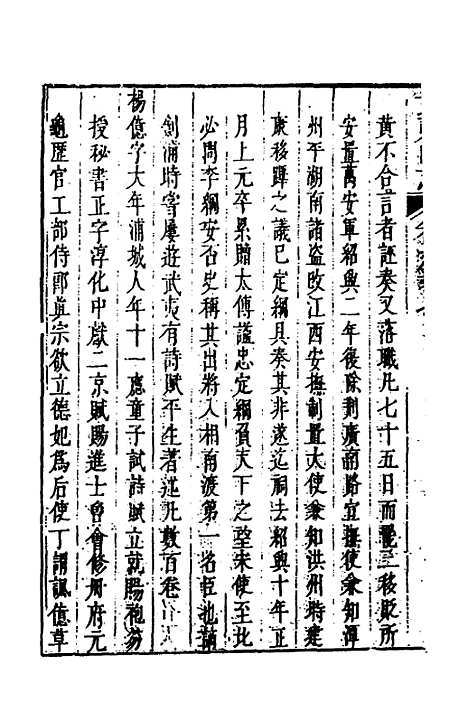 黄不合言者誣奏又落職凡七十五日而罷三移貶所
安置萬安軍紹興二年後除荆廣南路宣撫使兼知潭
州平湖南諸盗改江西安撫制置大使兼知洪州時建
康移蹕之議已定綱具奏其非遂迄祠去紹興十年正
月上元卒累贈太傅謚忠定綱負天下之望朱使至北
必問李綱安否史稱其出將入相南渡第一名臣也謫
劍浦時嘗屢遊武夷有詩賦平生著述凡數百卷
楊億字大年浦城人年十一應童子試詩賦立就賜袍笏
授秘書正字淳化中獻二京賦賜進士曾會修册府元
龜歷官工部侍郎眞宗欲立德妃爲后使丁謂諷億草